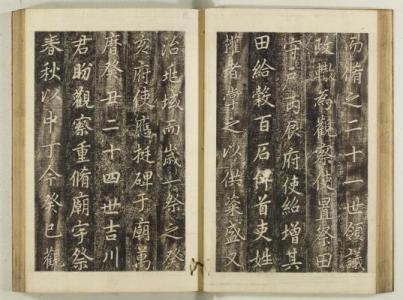 而脩之二十一世領議
政轍爲觀察使置祭田
守戶丙辰府使紹增其
田給穀百石俾首吏姓
權者掌之以供粢盛又
治兆域而歲一祭之癸
亥府使應挺碑于廟萬
曆癸丑二十四世吉川
君盼觀察重脩廟宇祭
春秋以中丁今癸巳觀